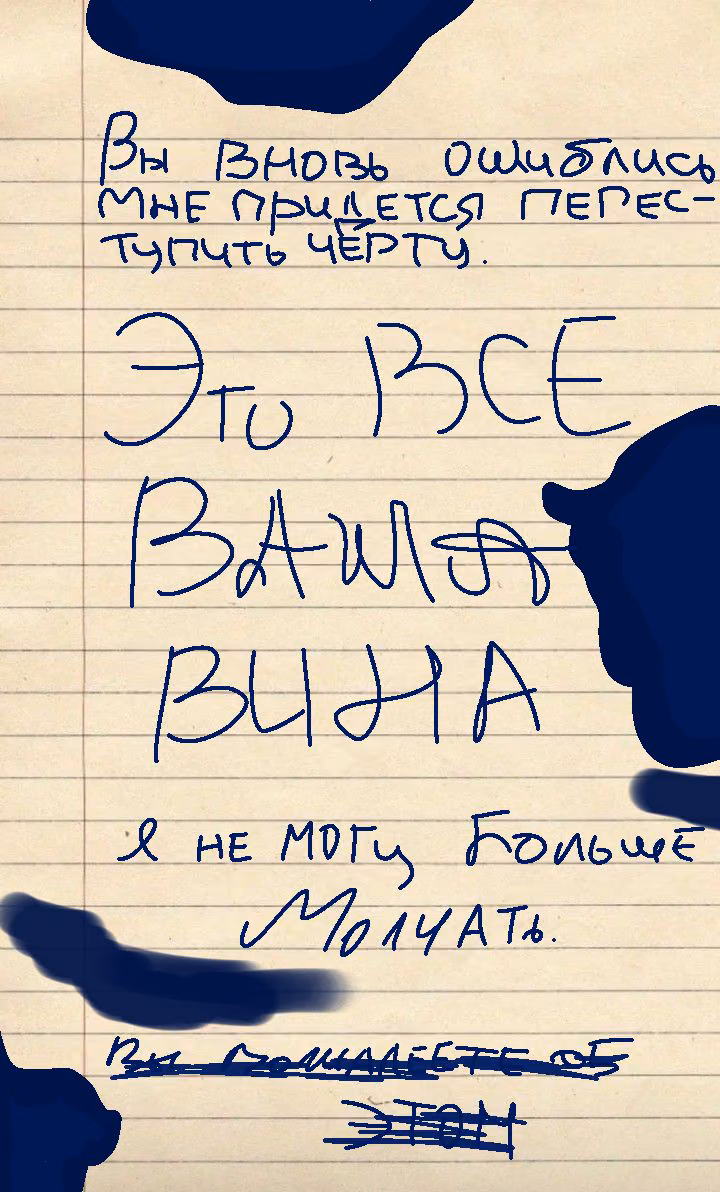 Вы вновь ошиблись
мне придется перес-
тупить черту.
Это ВСЕ
ВАША
ВИНА
я не могу больше
Молчать.
Вы пожалеете об
ЭТОМ